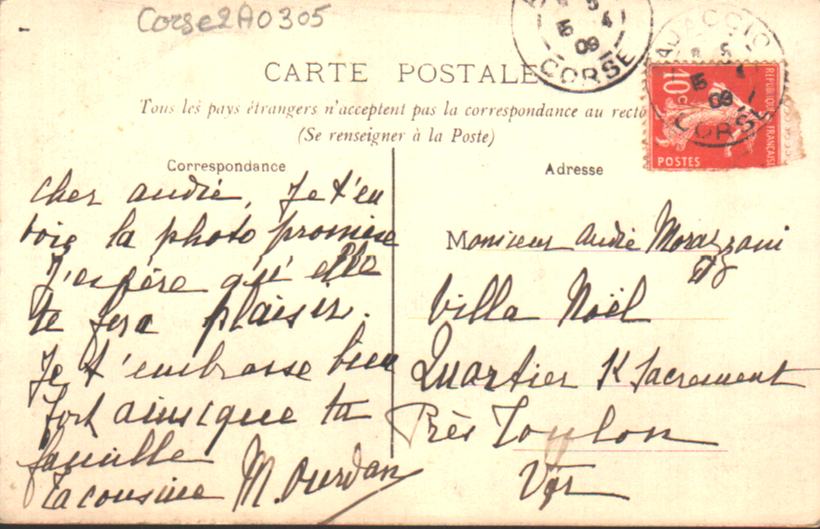 Corse2A0305
CARTE POSTALE
Tous les pays étrangers n'acceptent pas la correspondance au recto
(Se renseigner à la Poste)
Correspondance
cher andié, Je t'en
voie la photo promise
J'espère qu'elle
te fera plaisir.
Je t'embrasse bien
fort ainsique ta
famille
Ta cousine M. Ourdan
Adresse
Monsieur andié Morazzani
Villa Noël
Quartier St Sacrement
Près Toulon
Var
CORSE
15 4
09
AJACCIO
5
15 4
09
CORSE
10c
POSTES
REPUBLIQUE FRANÇAISE